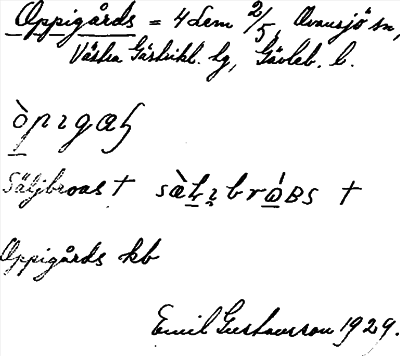 Oppigårds = 4 dem 2/5, Ovansjö sn,
Västra Gästrikl. tg, Gävleb. l.
Säljbroas †
Oppigårds kb
Emil Gustavsson 1929.